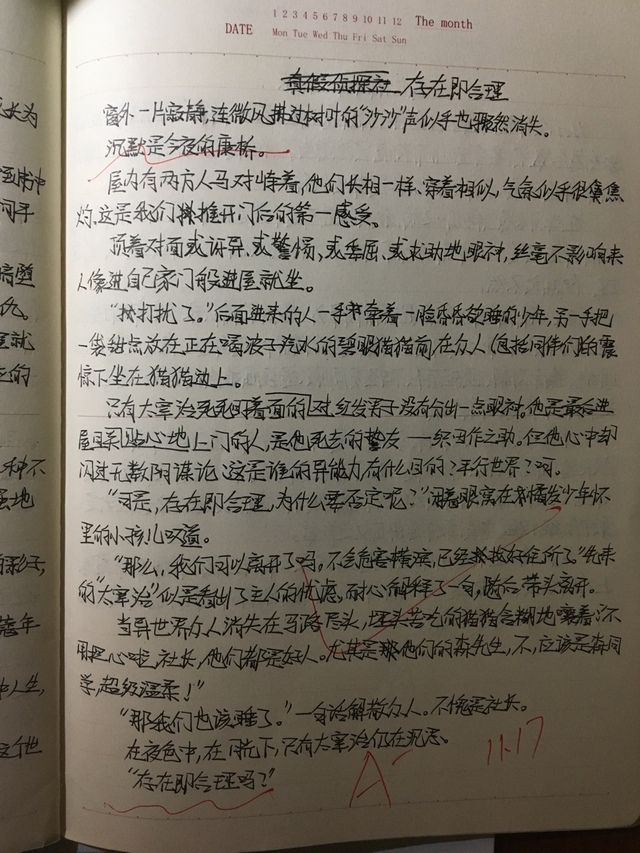 1 2 3 4 5 6 7 8 9 10 11 12 The month
DATE Mon Tue Wed Thu Fri Sat Sun
真假侦探社 存在即合理
窗外一片寂静,连微风拂过树叶的“沙沙”声似乎也骤然消失。
沉默是今夜的康桥。
屋内有两方人马对峙着,他们长相一样、穿着相似,气氛似乎很焦
灼。这是我们推开门后的第一感受。
顶着对面或讶异、或警惕、或委屈、或求助地眼神,丝毫不影响来
人像进自己家门般进屋就坐。
“打扰了。”后面进来的人一手牵着一脸昏昏欲睡的少年,另一手把
一袋甜点放在正在喝波子汽水的碧眼猫猫前,在众人(包括同伴们)的震
惊下坐在猫猫边上。
只有太宰治死死盯着面的红发男子没有分出一点眼神。他是最后进
屋且贴心地上门的人,是他死去的挚友——织田作之助。但他心中却
闪过无数阴谋论:这是谁的异能力?有什么目的?平行世界?啊。
“可是,存在即合理,为什么要否定呢?”闭着眼窝在橘发少年怀
里的小孩儿叹道。
“那么,我们可以离开了吗。不会危害横滨,已经找好住所了。”先来
的“太宰治”似是看出了主人的忧虑,耐心解释了一句,随后带头离开。
当异世界众人消失在马路尽头,埋头苦吃的猫猫含糊地嚷着:不
用担心啦,社长,他们都是好人。尤其是那他们的森先生,不,应该是森同
学,超级温柔!”
“那我们也该睡了。”一句话解散众人。不愧是社长。
在夜色中,在月光下,只有太宰治仍在沉思。
“存在即合理吗?”
A-
11.17
长为
间乎
就
的
种不
地
彩子,
年
人生,
个世